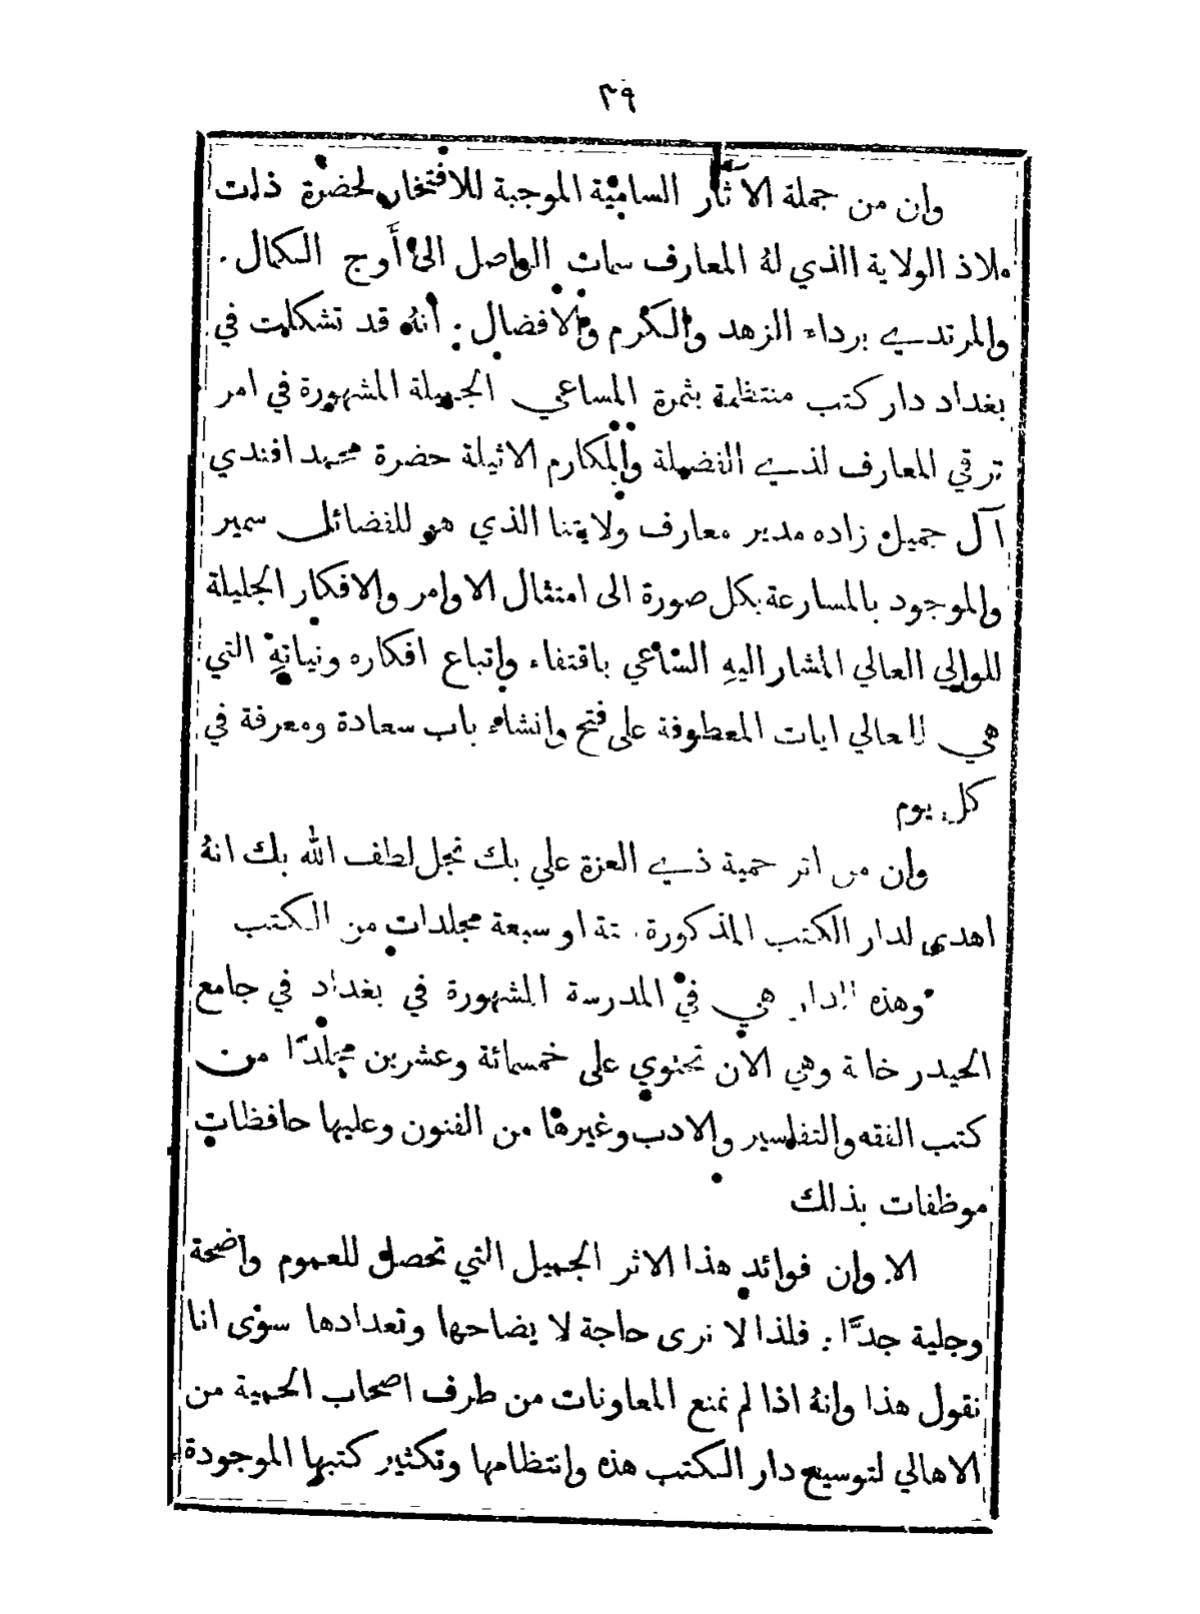 ٣٩
وان من جملة الآثار السامية الموجبة للافتخار لحضرة ذات
ملاذ الولاية الذي لهُ المعارف سمات الواصل الى أوج الكمال .
والمرتدي برداء الزهد والكرم والافضال . انهُ قد تشكلت في
بغداد دار كتب منتظمة بثمرة المساعي الجميلة المشهورة في امر
ترقي المعارف لذي الفضيلة والمكارم الاثيلة حضرة محمد افندي
آل جميل زاده مدير معارف ولايتنا الذي هو للفضائل سمير
والموجود بالمسارعة بكل صورة الى امتثال الاوامر والافكار الجليلة
للوالي العالي المشار اليهِ الساعي باقتفاء واتباع افكاره ونياتهِ التي
هي للعالي ايات المعطوفة على فتح وانشاء باب سعادة ومعرفة في
كل يوم
وان من اثر حمية ذي العزة علي بك نجل لطف الله بك انهُ
اهدى لدار الكتب المذكورة ستة او سبعة مجلدات من الكتب
وهذه الدار هي في المدرسة المشهورة في بغداد في جامع
الحيدر خانة وهي الان تحتوي على خمسمائة وعشرين مجلدًا من
كتب الفقه والتفلسير والادب وغيرها من الفنون وعليها حافظات
موظفات بذلك
الا وان فوائد هذا الاثر الجميل التي تحصل للعموم واضحة
وجلية جدًّا . فلذا لا نرى حاجة لا يضاحها وتعدادها سوى انا
نقول هذا وانهُ اذا لم نمنع المعاونات من طرف اصحاب الحمية من
الاهالي لتوسيع دار الكتب هذه وانتظامها وتكثير كتبها الموجودة